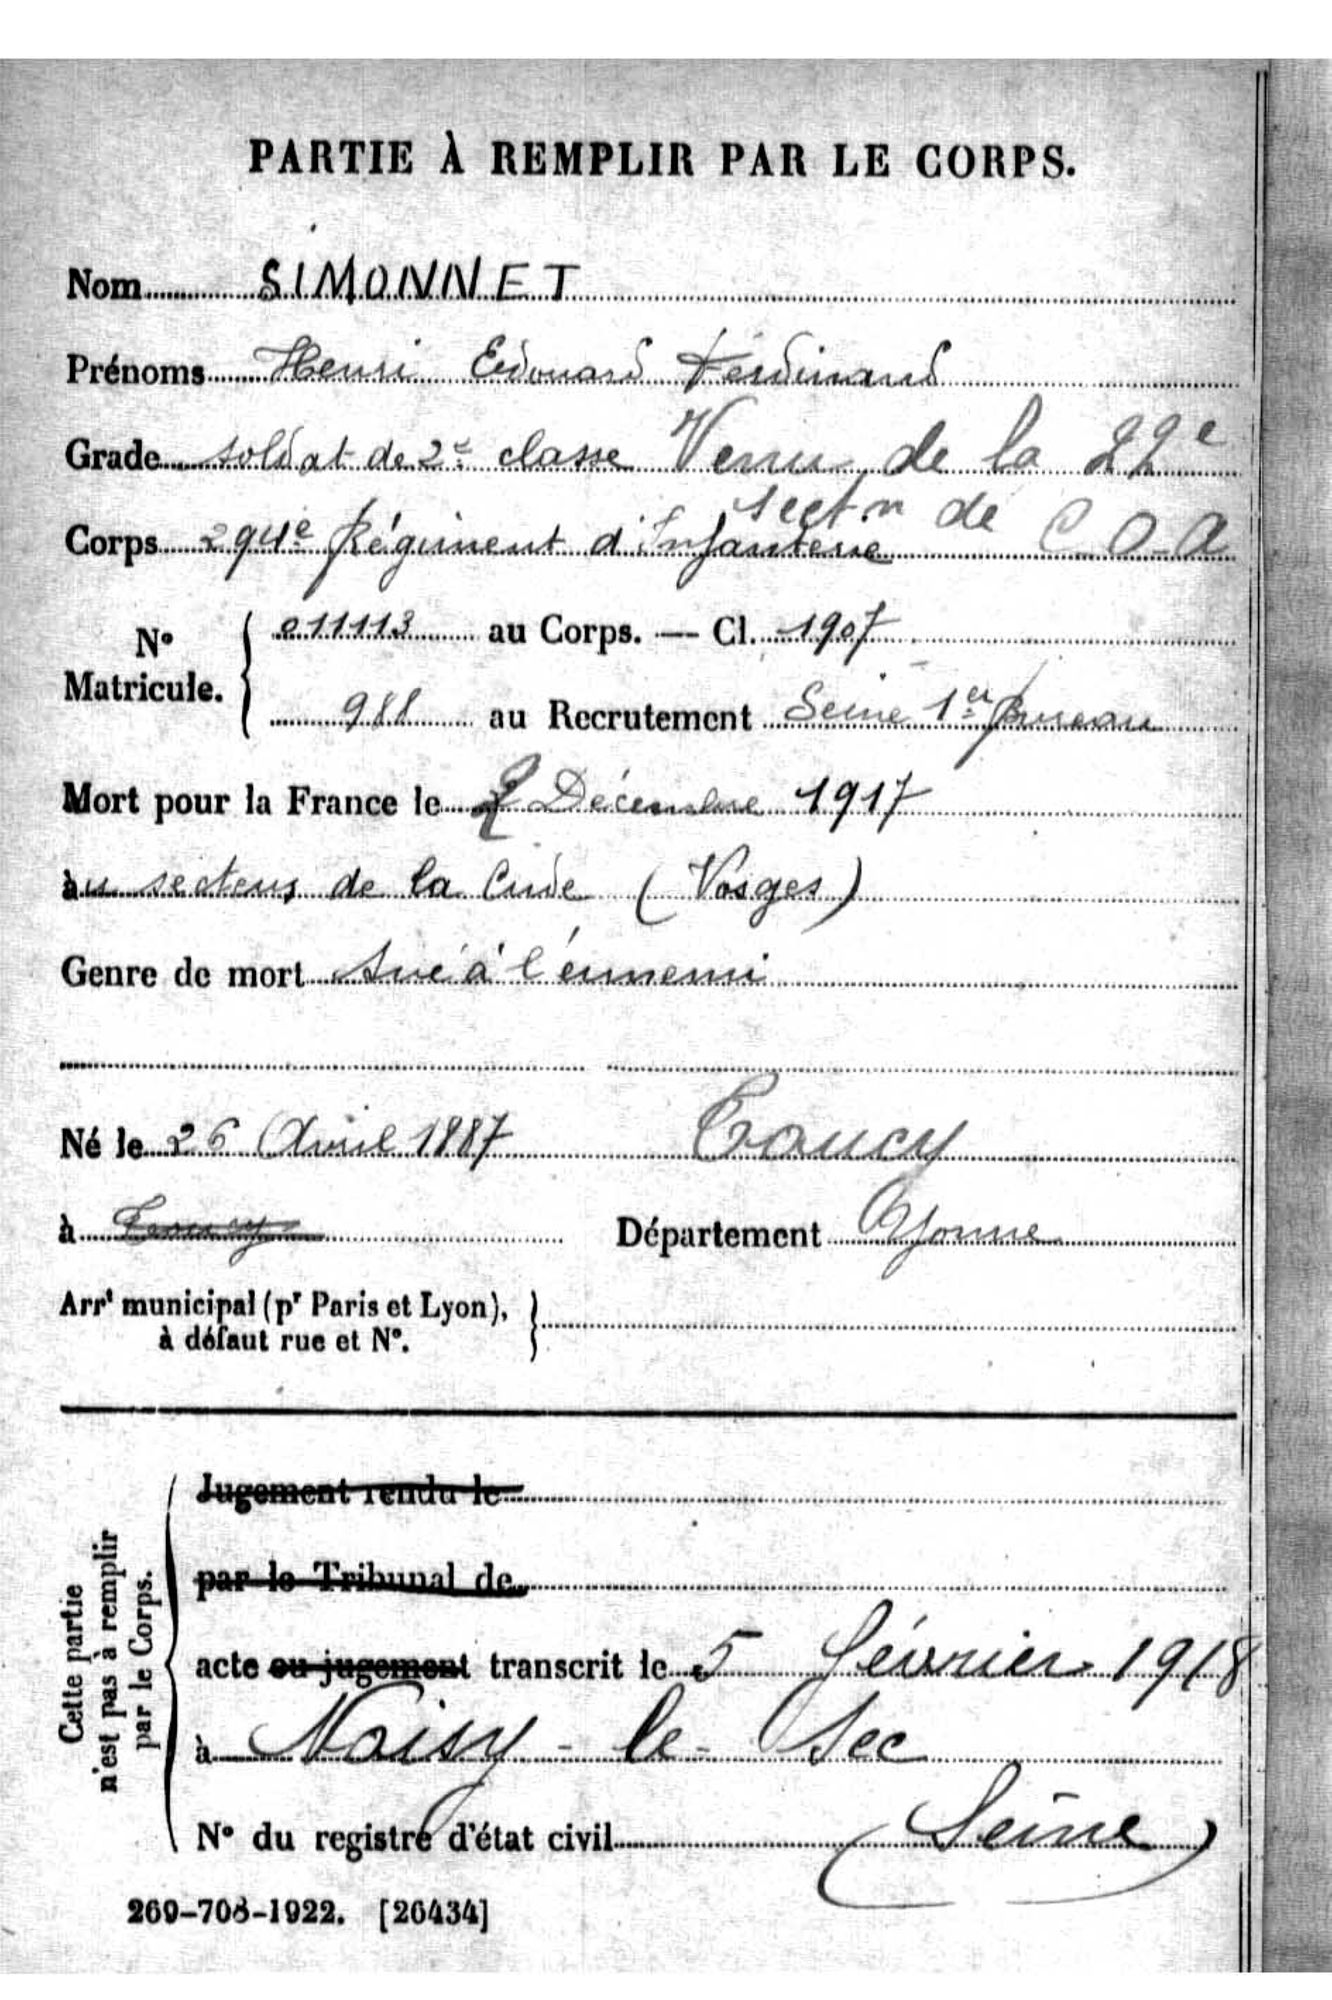 PARTIE À REMPLIR PAR LE CORPS.
Nom SIMONNET
Prénoms Henri Edouard Ferdinand
Grade soldat de 2e classe Venu de la 22e
sect.n de C O A
Corps 294e Régiment d'Infanterie
N° Matricule. { 011113 au Corps. — Cl. 1907
988 au Recrutement Seine 1er Bureau
Mort pour la France le 2 Décembre 1917
au secteur de la Cude (Vosges)
Genre de mort tué à l'ennemi
Né le 26 Avril 1887 Toucy
à Toucy Département Yonne
Arrt municipal (pr Paris et Lyon), }
à défaut rue et N°.
Cette partie
n'est pas à remplir
par le Corps.
Jugement rendu le
par le Tribunal de
acte ou jugement transcrit le 5 février 1918
à Noisy-le-Sec
(Seine)
N° du registre d'état civil
269-708-1922. [26434]